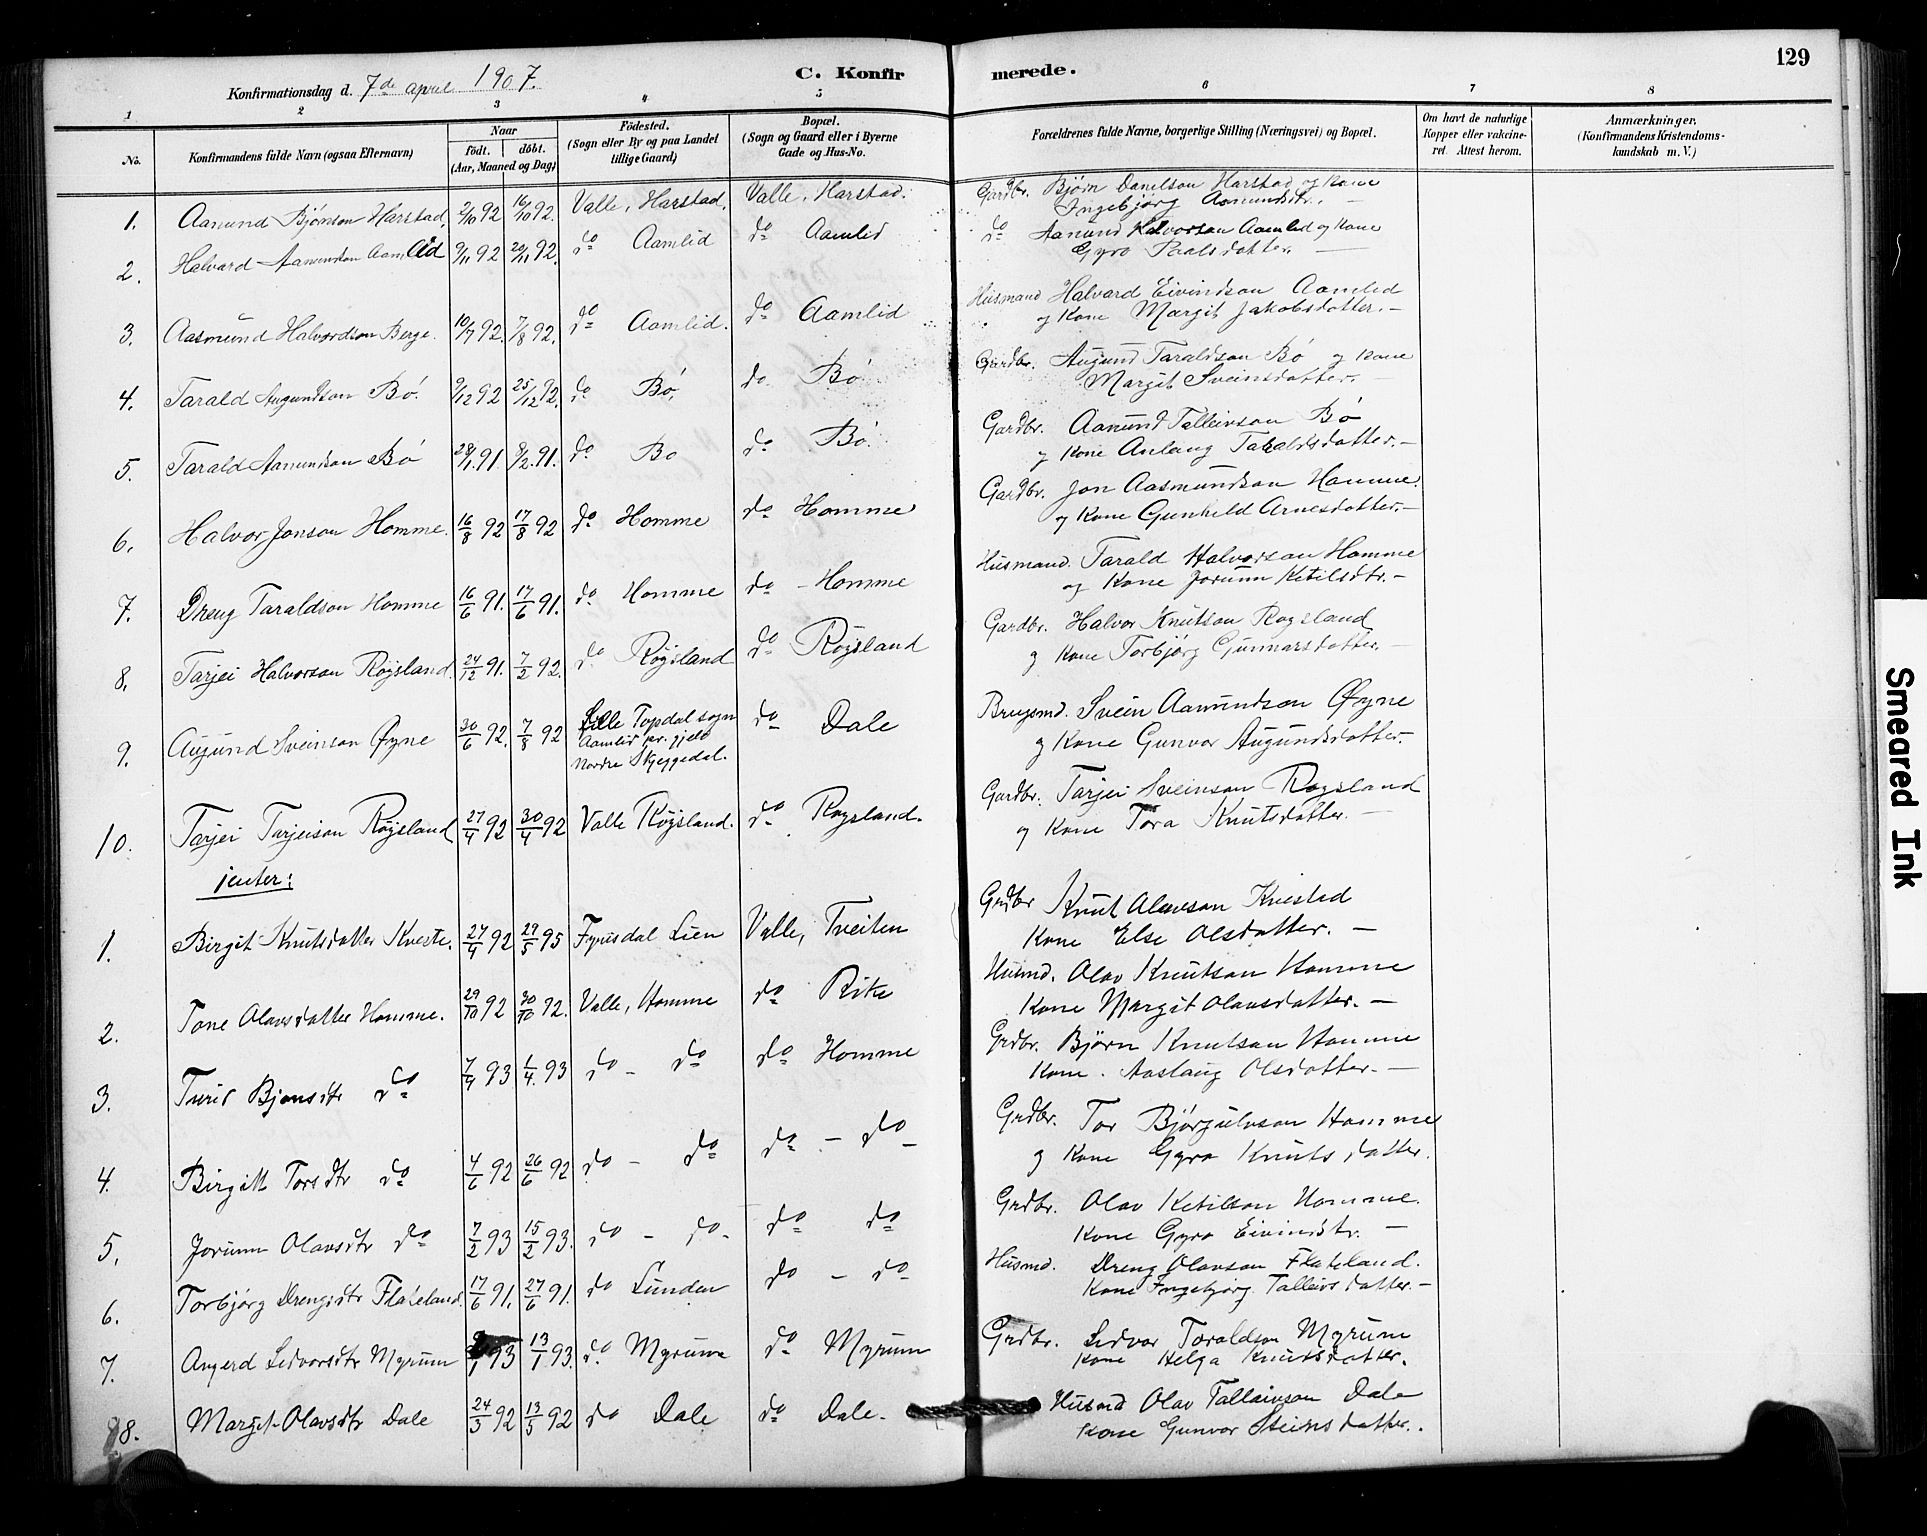 129
Konfirmationsdag d. 7de april 1907.
C. Konfirmerede.
1 2 3 4 5 6 7 8
No.
Konfirmandens fulde Navn (ogsaa Efternavn)
Naar
født. døbt.
(Aar, Maaned og Dag)
Fødested.
(Sogn eller By og paa Landet
tillige Gaard)
Bopæl.
(Sogn og Gaard eller i Byerne
Gade og Hus-No.
Forældrenes fulde Navne, borgerlige Stilling (Næringsvei) og Bopæl.
Om havt de naturlige
Kopper eller vakcine-
ret. Attest herom.
Anmærkninger.
(Konfirmandens Kristendoms-
kundskab m. V.)
1. Aanund Bjønson Harstad. 2/10 92 16/10 92. Valle, Harstad. Valle, Harstad. Gardbr. Bjørn Danelson Harstad og kone
Ingebjørg Aamundsdtr. —
2. Halvard Aanundson Aamlid 9/11 92 20/11 92. do Aamlid do Aamlid do Aanund Halvorson Aamlid og Kone
Gyro Paalsdatter. —
3. Aasmund Halvordson Berge. 10/7 92. 7/8 92. do Aamlid. do Aamlid Husmand Halvard Eivindson Aamlid
og Kone Margit Jakobsdatter. —
4. Tarald Augundson Bó. 9/12 92 25/12 92. do Bó, do. Bó. Gardbr. Augund Taraldson Bó og Kone
Margit Sveinsdatter. —
5. Tarald Aanundson Bó 28/1 91. 8/2. 91. do Bo do Bó. Gardbr. Aanund Talleivson Bó
og Kone Anlaug Taraldsdatter. —
6. Halvor Jonson Homme. 16/8 92 17/8 92 do Homme do Homme Gardbr. Jon Aasmundson Homme.
og Kone Gunhild Arnesdatter. —
7. Dreug Taraldson Homme 16/6 91. 17/6 91. do Homme do - Homme Husmand. Tarald Halvorson Homme
og Kone Jorunn Ketilsdtr. —
8. Tarjei Halvorson Røysland. 24/12 91. 7/2 92. do Røysland do Røysland Gardbr. Halvor Knutson Rogsland
og Kone Torbjørg Gunnarsdatter. —
9. Augund Sveinson Øyne 30/6 92. 7/8 92 Lille Topdal sogn
Aamlid pr. gjeld
Nordre Skjeggedal.
do Dale Brugsmd. Svein Aamundson Øyne
og Kone Gunvor Augundsdatter.
10. Tarjei Tarjeison Røysland 27/4 92 30/4 92 Valle Røysland. do Rogsland. Gardbr. Tarjei Sveinson Rogsland
og Kone Tora Knutsdatter. —
jenter:
1. Birgit Knutsdatter Kveste. 27/4 92 29/5 95 Fyrisdal Lien Valle, Tveiten Grdbr Knut Olavson Kvestad
Kone Else Olsdatter. —
2. Tone Olavsdatter Homme. 29/10 92 30/10 92. Valle, Homme do Rike Husmd. Olav Knutson Homme
Kone Margit Olavsdatter. —
3. Turid Bjønsdtr do 7/4 93 1/4. 93 do - do do Homme Grdbr. Bjørn Knutson Homme
Kone. Aaslaug Olsdatter. —
4. Birgitt Torsdtr do 4/6 92 26/6 92 do - do do - do Grdbr. Tor Bjørgulvson Homme
og Kone Gyro Knuts datter.
5. Jorunn Olavsdtr do 7/2 93 15/2 93. do - do. do do Grdbr. Olav Ketilson Homme.
Kone Gyro Eivindsdtr. —
6. Torbjørg Drengsdtr Flateland. 17/6 91. 27/6 91. do Lunden do - do Husmd. Dreng Olavson Flateland.
Kone Ingebjørg Talleivs datter. —
7. Angerd Ledvorsdtr Myrum 1 93 13/1 93. do Myrum do Myrum Grdbr. Ledvor Toraldson Myrum
Kone Helga Knutsdatter.
8. Margit Olavsdtr Dale 24/5 92 13/5 92 do Dale do Dale. Husmd Olav Talleivson Dale
Kone Gunvor Steinsdatter.
Smeared Ink